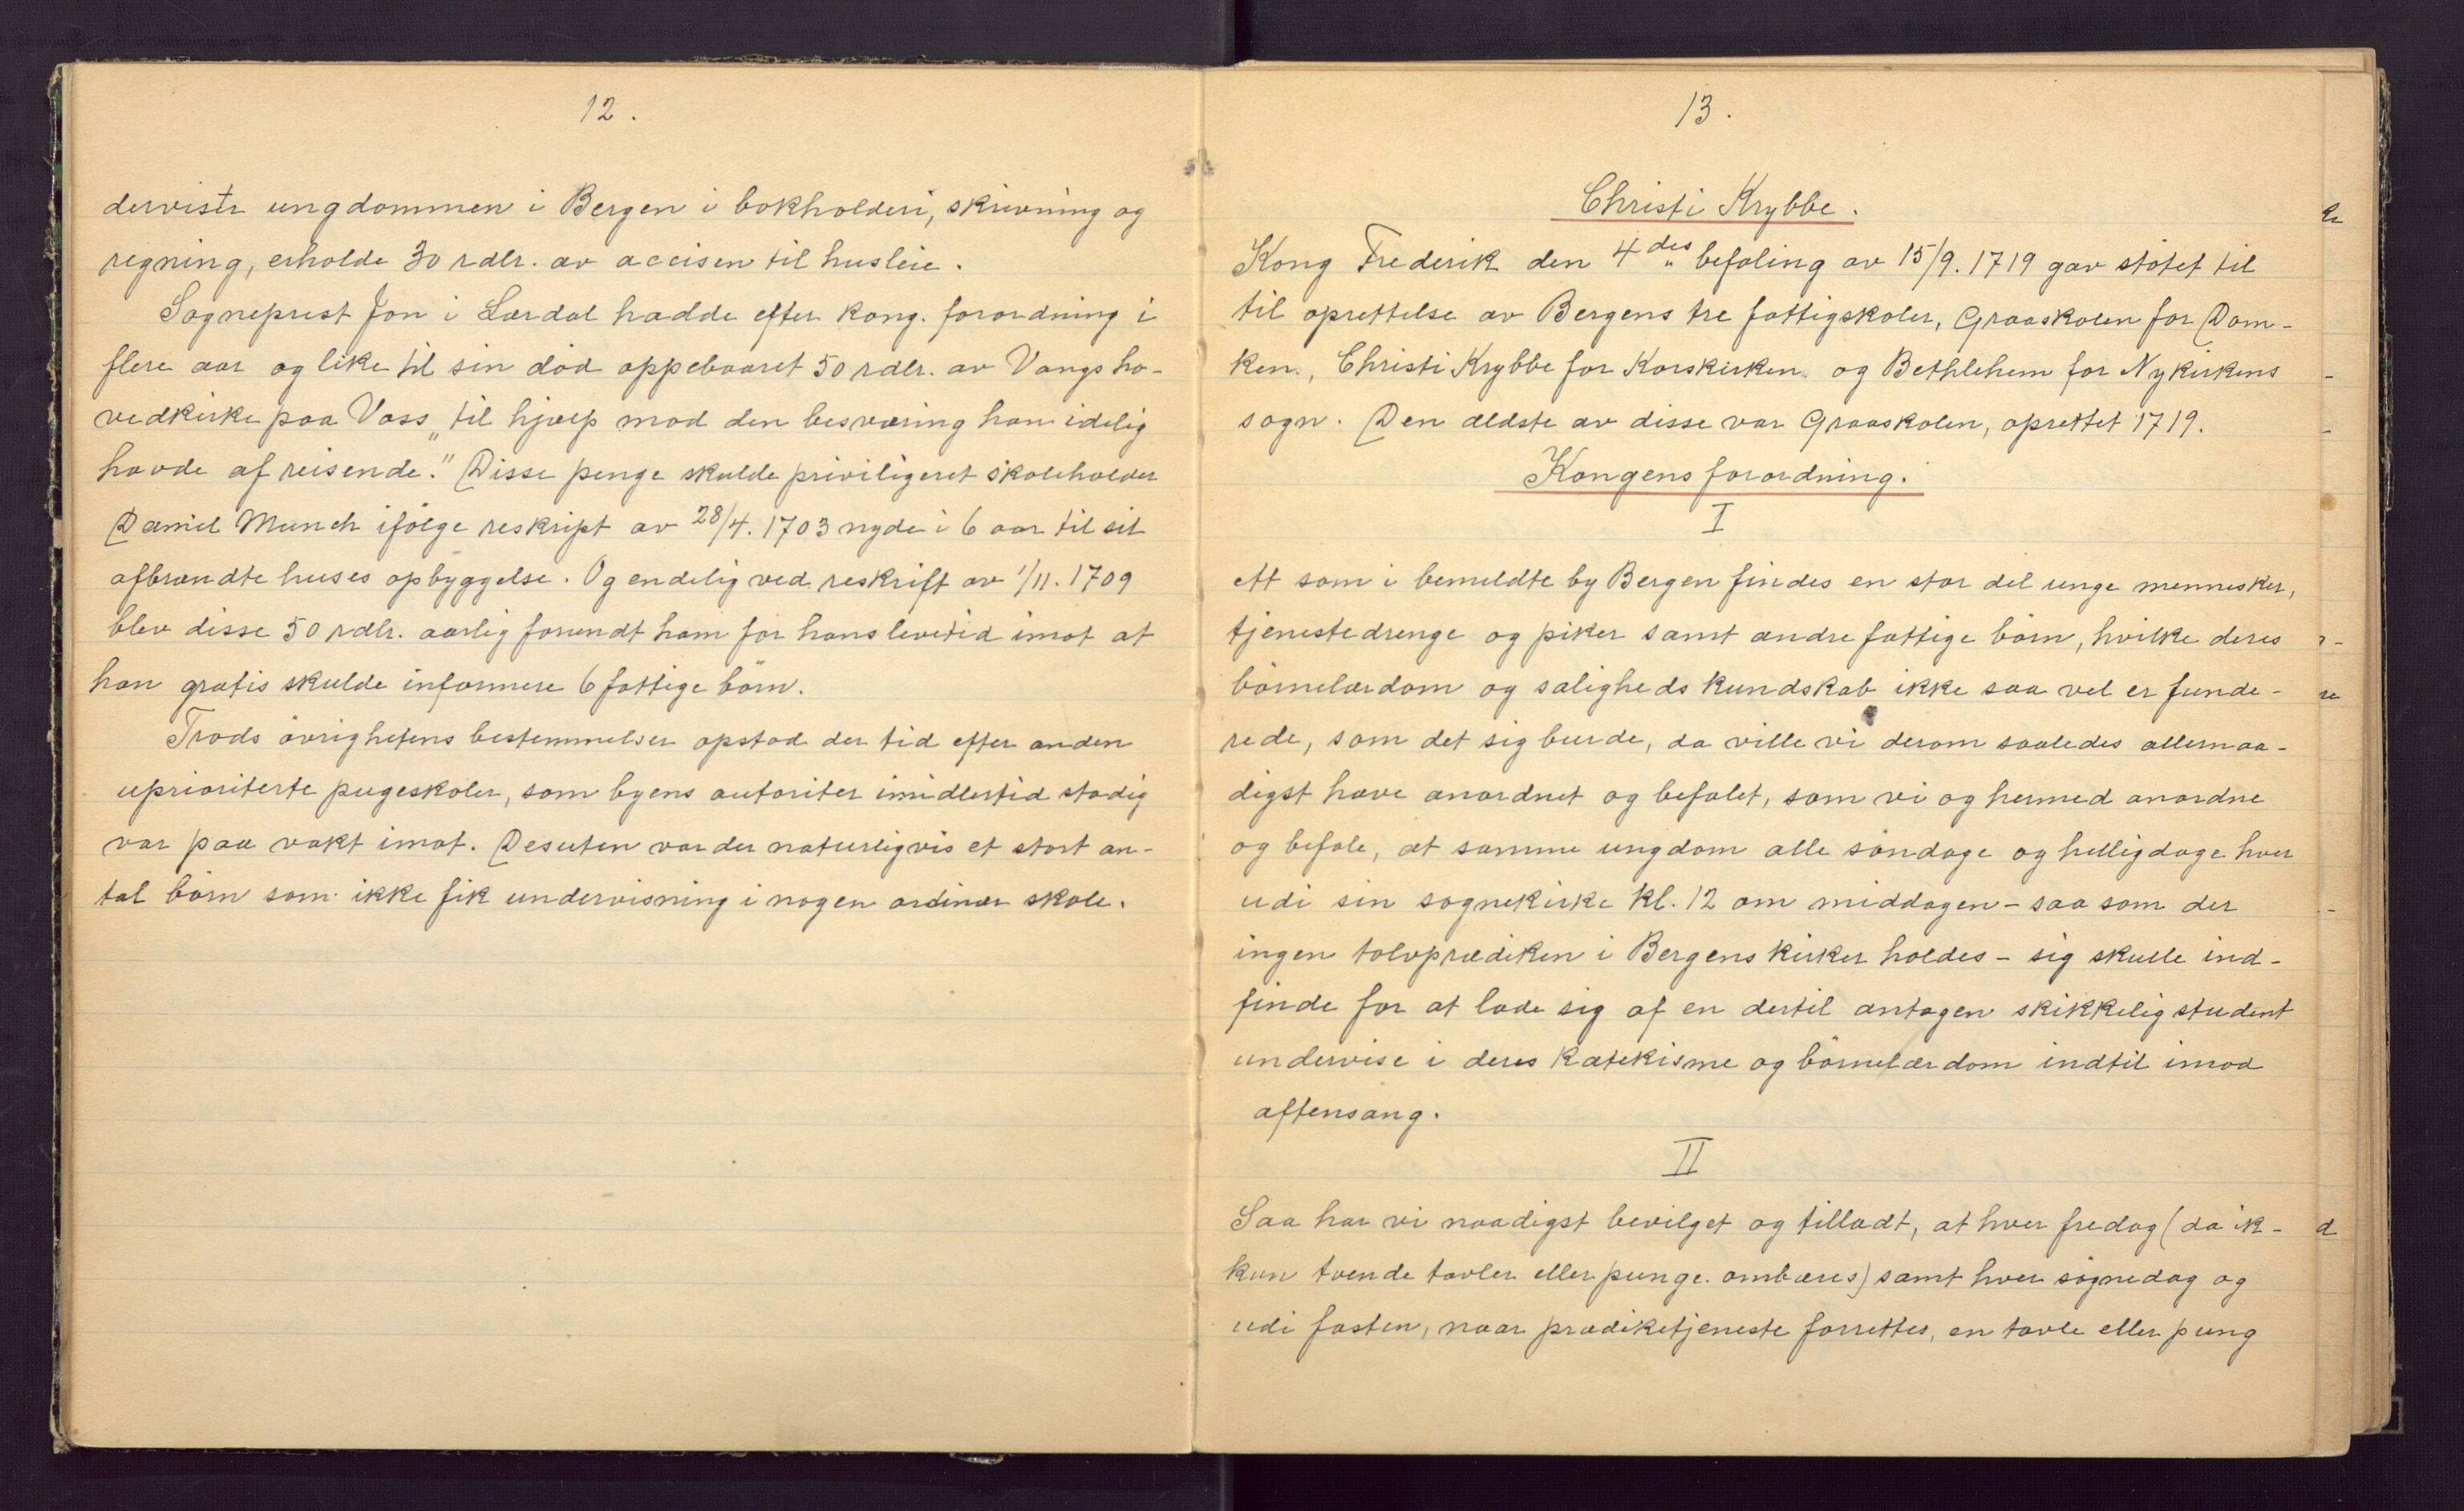 12.
derviste ungdommen i Bergen i bokholderi, skrivning og
regning, erholde 30 rdlr. av accisen til husleie.
Sogneprest Jon i Lærdal hadde efter kong. forordning i
flere aar og like til sin död oppebaaret 50 rdlr. av Vangs ho-
vedkirke paa Voss „til hjælp mod den besværing han idelig
havde af reisende." Disse penge skulde priviligeret skoleholder
Daniel Munch ifölge reskript av 28/4. 1703 nyde i 6 aar til sit
afbrændte huses opbyggelse. Og endelig ved reskrift av 1/11. 1709
blev disse 50 rdlr. aarlig forundt ham for hans levetid imot at
han gratis skulde informere 6 fattige börn.
Trods övrighetens bestemmelser opstod der tid efter anden
uprioriterte pugeskoler, som byens autoriter imidlertid stadig
var paa vakt imot. Desuten var der naturligvis et stort an-
tal börn som ikke fik undervisning i nogen ordinær skole.
13.
Christi Krybbe.
Kong Frederik den 4des befaling av 15/9. 1719 gav stötet til
til oprettelse av Bergens tre fattigskoler, Graaskolen for Dom-
ken., Christi Krybbe for Korskirken og Bethlehem for Nykirkens
sogn. Den ældste av disse var Graaskolen, oprettet 1719.
Kongens forordning.
I
At som i bemeldte by Bergen findes en stor del unge mennesker,
tjenestedrenge og piker samt andre fattige börn, hvilke deres
börnelærdom og saligheds kundskab ikke saa vel er funde-
rede, som det sig burde, da ville vi derom saaledes allernaa-
digst have anordnet og befalet, som vi og hermed anordne
og befale, at samme ungdom alle söndage og helligdage hver
udi sin sognekirke kl. 12 om middagen - saa som der
ingen tolvprædiken i Bergens kirker holdes - sig skulle ind-
finde for at lade sig af en dertil antagen skikkelig student
undervise i deres katekisme og börnelærdom indtil imod
aftensang.
II
Saa har vi naadigst bevilget og tilladt, at hver fredag (da ik-
kun tvende tavler eller punge ombæres) samt hver sögnedag og
udi fasten, naar prædiketjeneste forrettes, en tavle eller pung